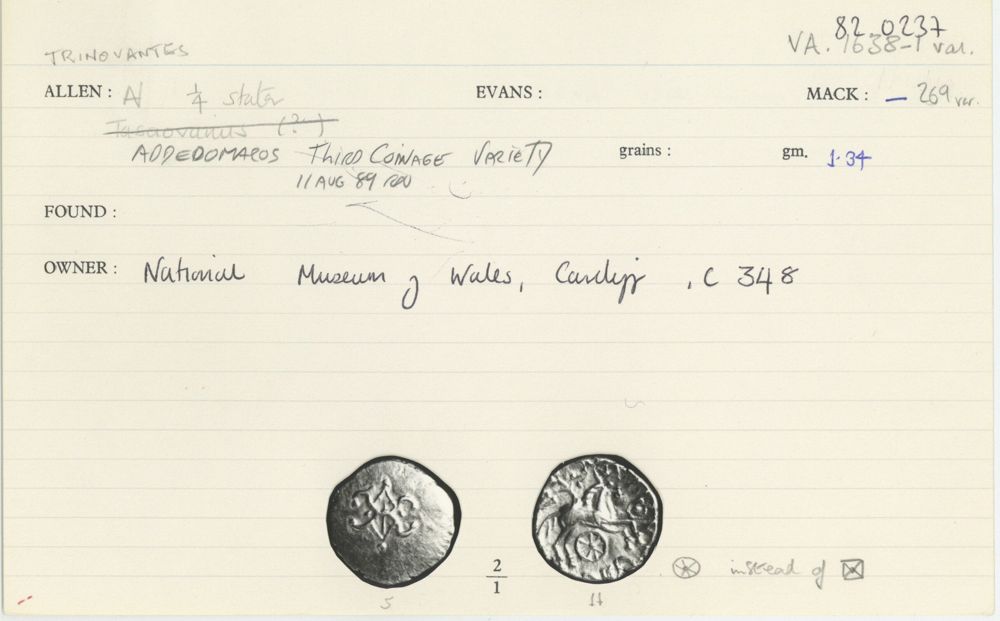 82.0237
TRINOVANTES VA. 1638-1 var.
ALLEN : AV 1/4 stater EVANS : MACK : — 269 var.
Tasciovanus (?)
ADDEDOMAROS THIRD COINAGE VARIETY grains : gm. 1.34
11 AUG 89
FOUND :
OWNER : National Museum of Wales, Cardiff, C 348
2/1
instead of
5 H